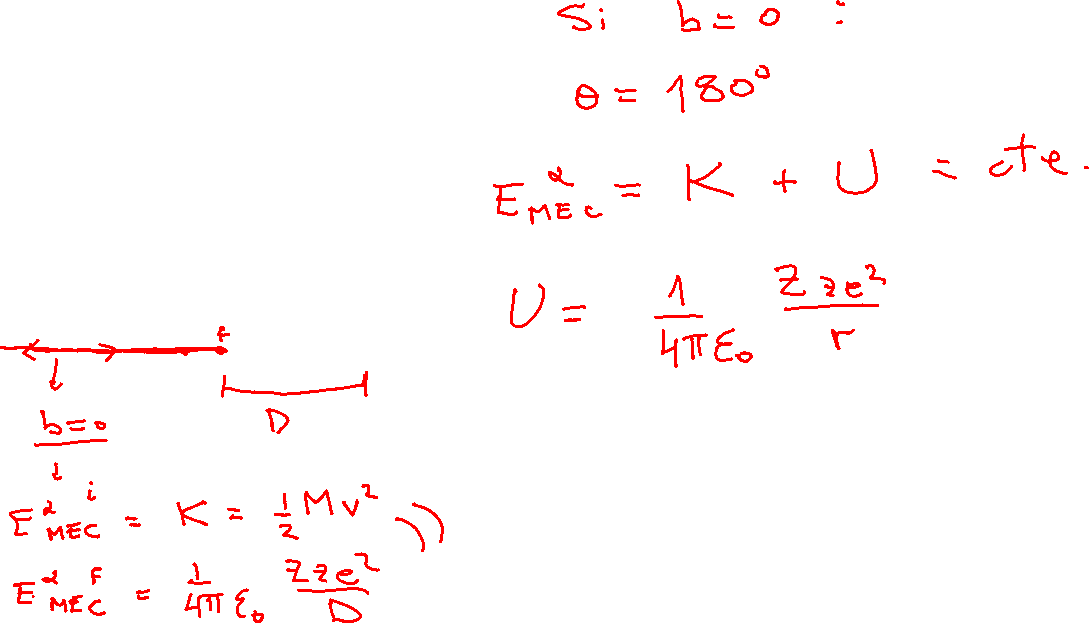 Si b = 0 :
θ = 180°
E^α_MEC = K + U = cte.
U = 1/4πε₀ Zze²/r
F
D
b = 0
E^α i_MEC = K = 1/2 Mv²
E^α F_MEC = 1/4πε₀ Zze²/D